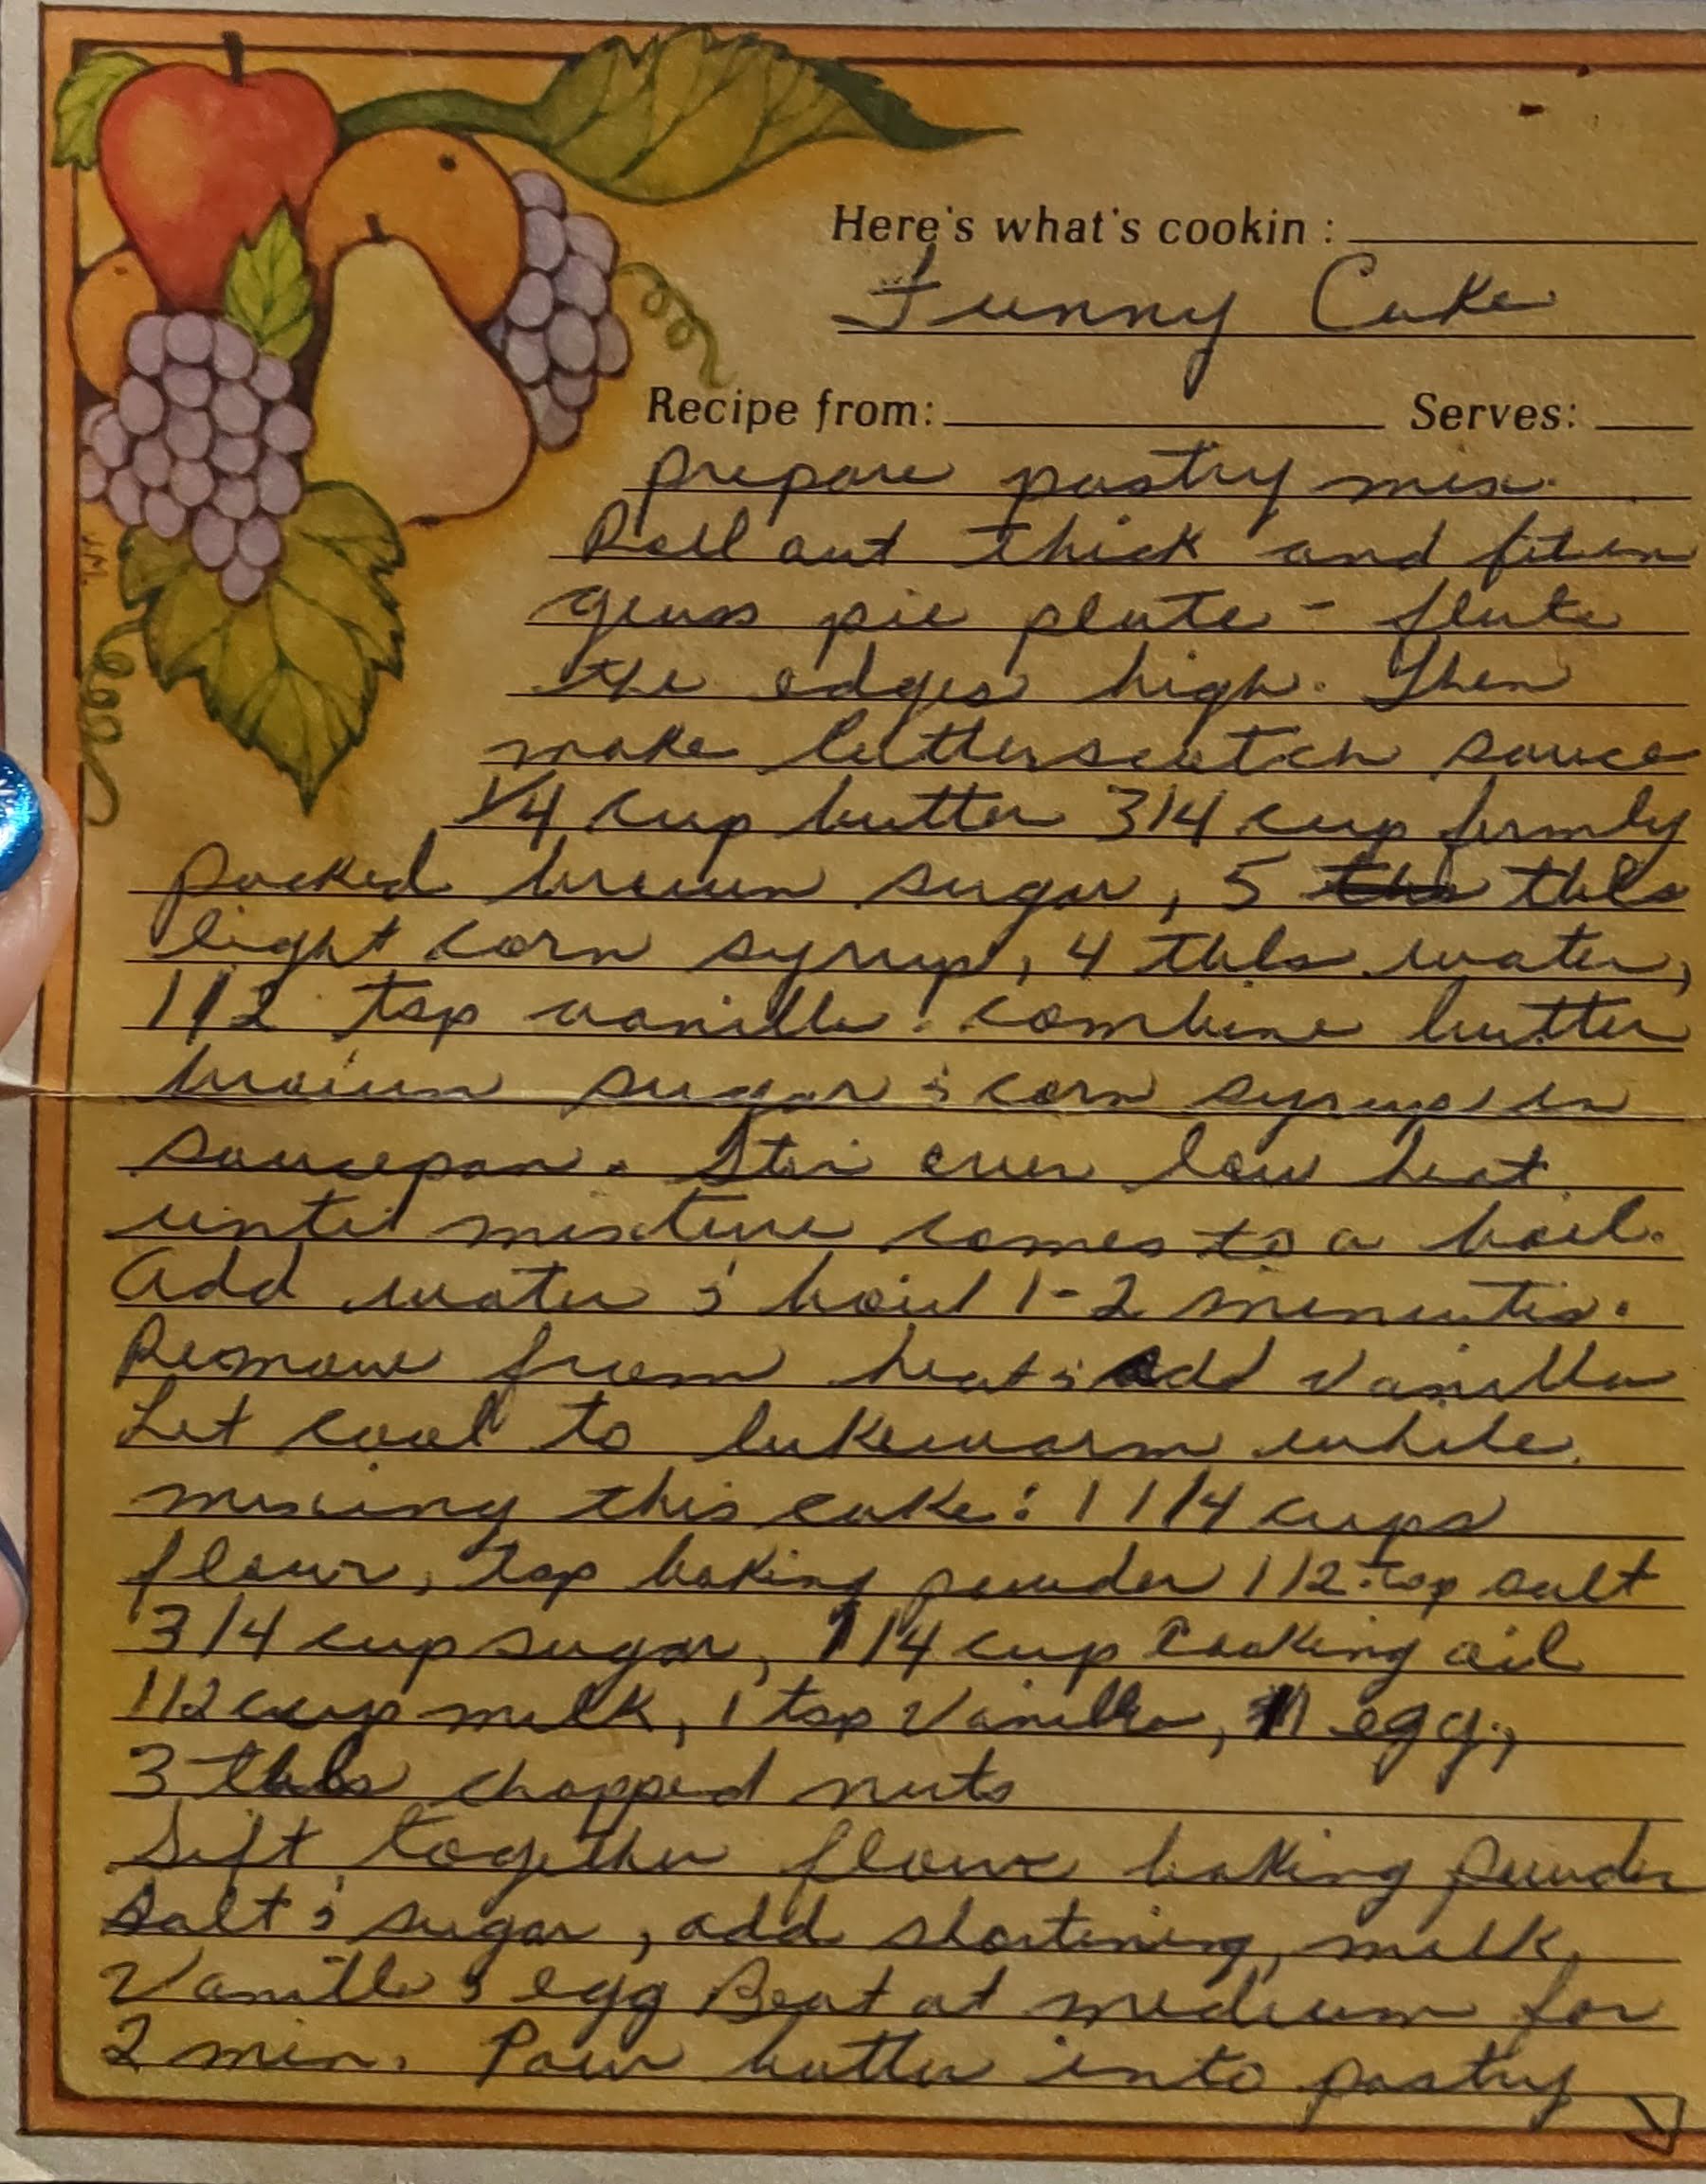 Here's what's cookin :
Funny Cake
Recipe from: Serves:
prepare pastry mix.
Roll out thick and fit in
glass pie plate - flute
the edges high. Then
make butterscotch sauce
1/4 cup butter 3/4 cup firmly
packed brown sugar, 5 tbls
light corn syrup, 4 tbls water,
1/2 tsp vanilla. Combine butter
brown sugar & corn syrup in
saucepan. Stir over low heat
until mixture comes to a boil.
Add water & boil 1-2 minutes.
Remove from heat & add vanilla
Let cool to lukewarm while
mixing this cake: 1 1/4 cups
flour, tsp baking powder 1/2 tsp salt
3/4 cup sugar, 1/4 cup cooking oil
1/2 cup milk, 1 tsp vanilla, 1 egg,
3 tbls chopped nuts
Sift together flour baking powder
salt & sugar, add shortening, milk,
Vanilla & egg Beat at medium for
2 min. Pour batter into pastry